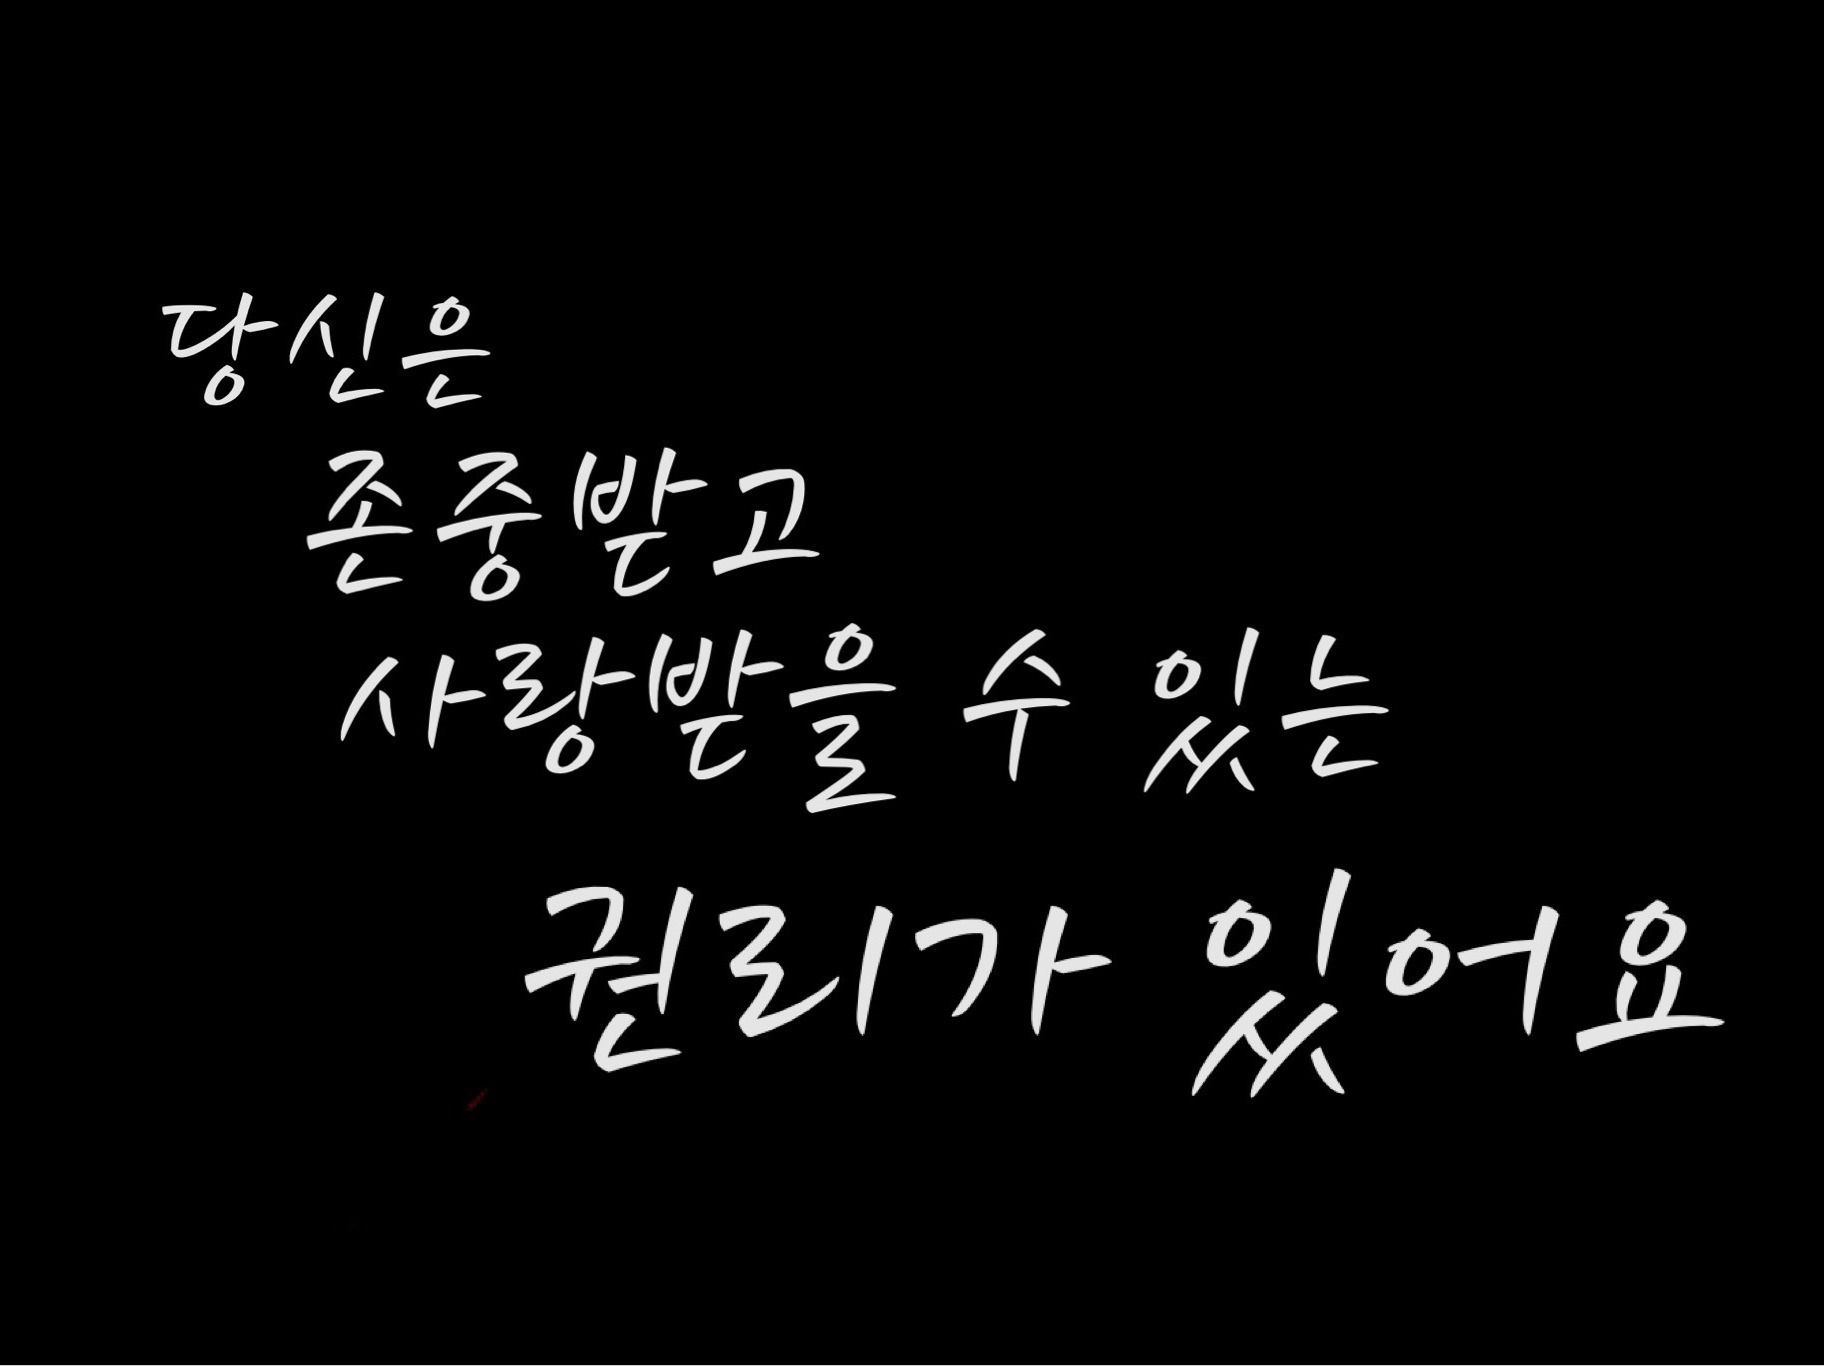 당신은
존중받고
사랑받을 수 있는
권리가 있어요